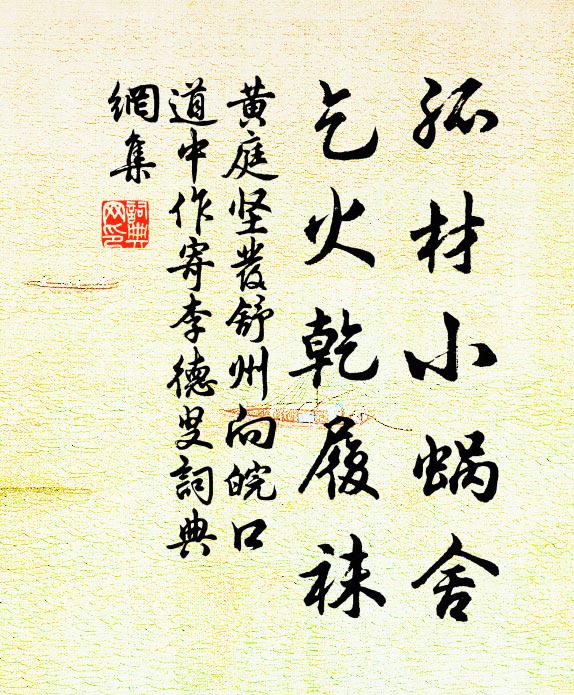 孤材小蜗舍
乞火乾履袜
黄庭坚發舒州向皖口
道中作寄李德叟詞典
網集
詞典
网印